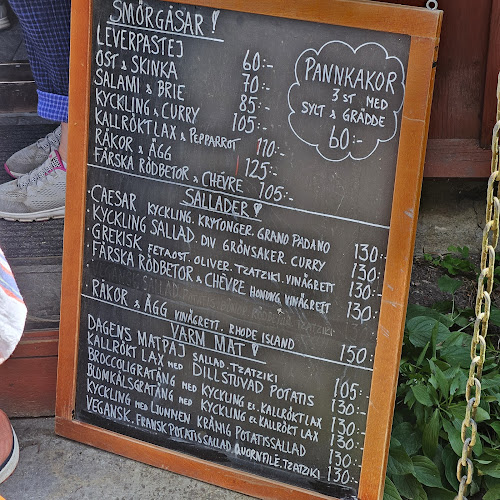 SMÖRGÅSAR!
LEVERPASTEJ 60:-
OST & SKINKA 70:-
SALAMI & BRIE 85:-
KYCKLING & CURRY 105:-
KALLRÖKT LAX & PEPPARROT 110:-
RÄKOR & ÄGG 125:-
FÄRSKA RÖDBETOR & CHÈVRE 105:-
PANNKAKOR
3 ST MED
SYLT & GRÄDDE
60:-
SALLADER!
CAESAR KYCKLING. KRYTONGER. GRANO PADANO 130:-
KYCKLING SALLAD. DIV GRÖNSAKER. CURRY 130:-
GREKISK FETAOST. OLIVER. TZATZIKI. VINÄGRETT 130:-
FÄRSKA RÖDBETOR & CHÈVRE HONUNG. VINÄGRETT 130:-
RÄKOR & ÄGG VINÄGRETT. RHODE ISLAND 150:-
VARM MAT!
DAGENS MATPAJ SALLAD. TZATZIKI 105:-
KALLRÖKT LAX MED DILLSTUVAD POTATIS 130:-
BROCCOLIGRATÄNG MED KYCKLING EL. KALLRÖKT LAX 130:-
BLOMKÅLSGRATÄNG MED KYCKLING EL. KALLRÖKT LAX 130:-
KYCKLING MED LJUMMEN KRÄMIG POTATISSALLAD 130:-
VEGANSK. FRANSK POTATISSALLAD. QUORNFILÉ. TZATZIKI 130:-